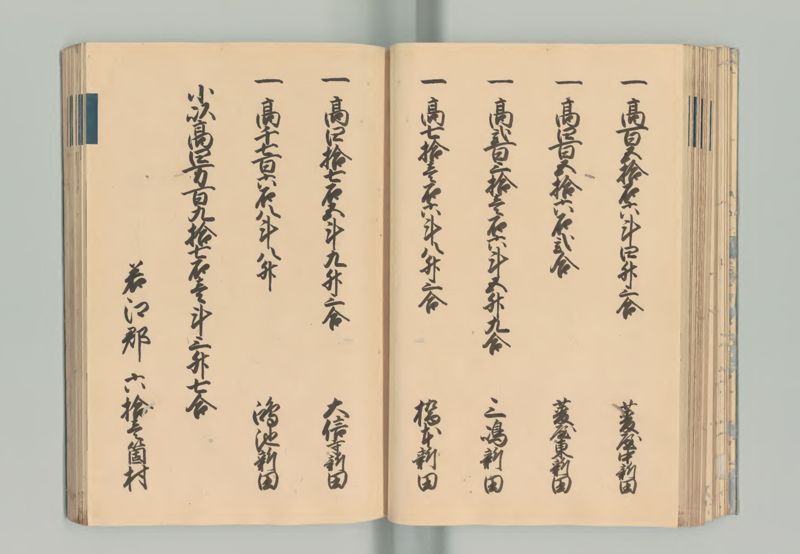 一 高百五拾石六斗四升三合 菱屋中新田
一 高四百五拾六石弐合 菱屋東新田
一 高弐百三拾壱石六斗五升九合 三嶋新田
一 高七拾壱石六斗八升三合 橋本新田
一 高四拾七石五斗九升三合 大信寺新田
一 高千七百六石八斗八升 鴻池新田
小以高四万百九拾七石壱斗三升七合
若江郡 六拾壱箇村